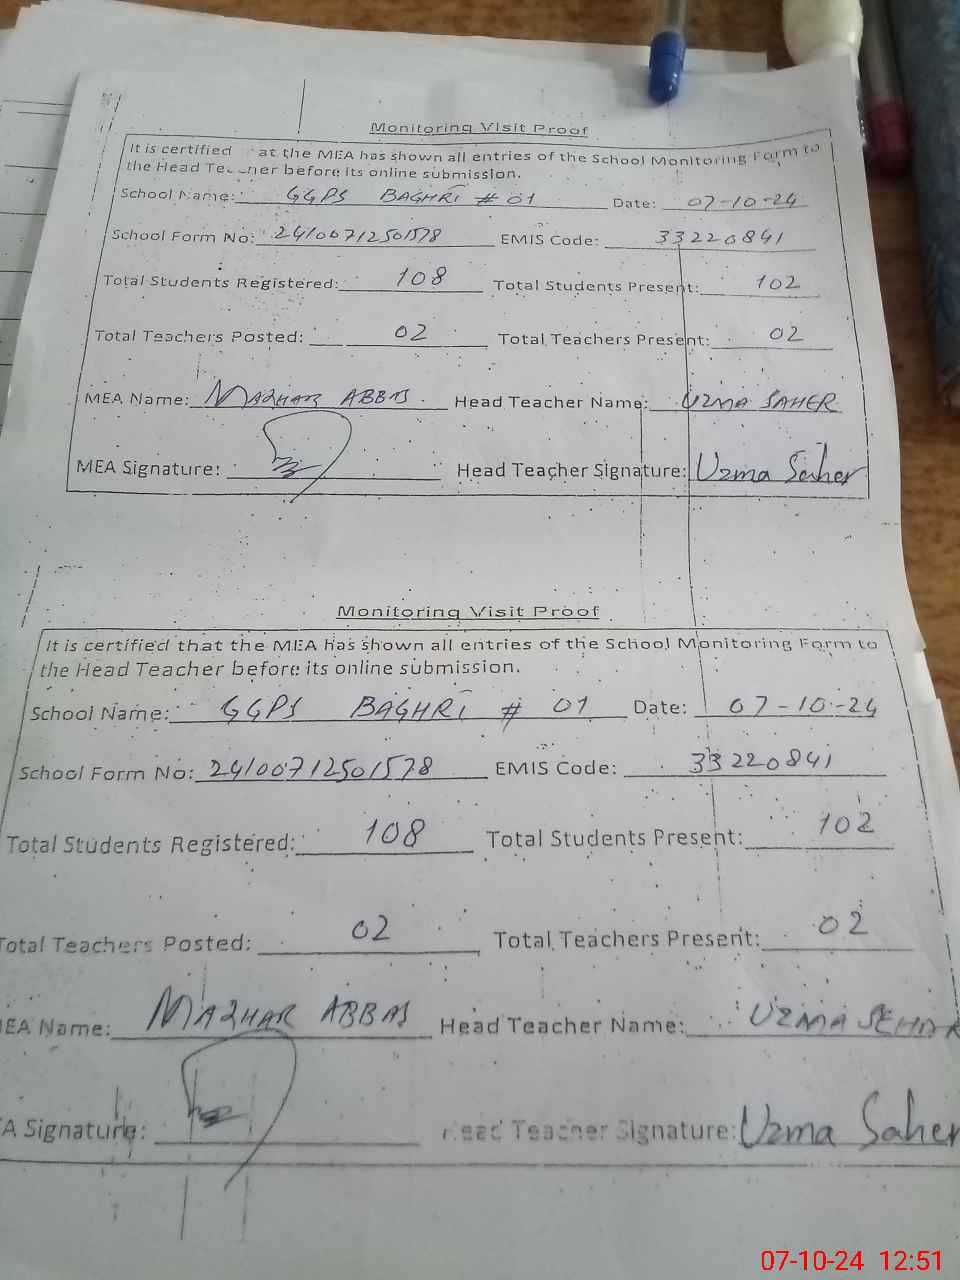 Monitoring Visit Proof
It is certified at the MEA has shown all entries of the School Monitoring Form to
the Head Teacher before its online submission.
School Name: GGPS BAGHRI # 01 Date: 07-10-24
School Form No: 24100712501578 EMIS Code: 33220841
Total Students Registered: 108 Total Students Present: 102
Total Teachers Posted: 02 Total Teachers Present: 02
MEA Name: MAZHAR ABBAS Head Teacher Name: UZMA SAHER
MEA Signature: Head Teacher Signature: Uzma Saher
Monitoring Visit Proof
It is certified that the MEA has shown all entries of the School Monitoring Form to
the Head Teacher before its online submission.
School Name: GGPS BAGHRI # 01 Date: 07-10-24
School Form No: 24100712501578 EMIS Code: 33220841
Total Students Registered: 108 Total Students Present: 102
Total Teachers Posted: 02 Total Teachers Present: 02
MEA Name: MAZHAR ABBAS Head Teacher Name: UZMA SEHAR
EA Signature: Head Teacher Signature: Uzma Saher
07-10-24 12:51